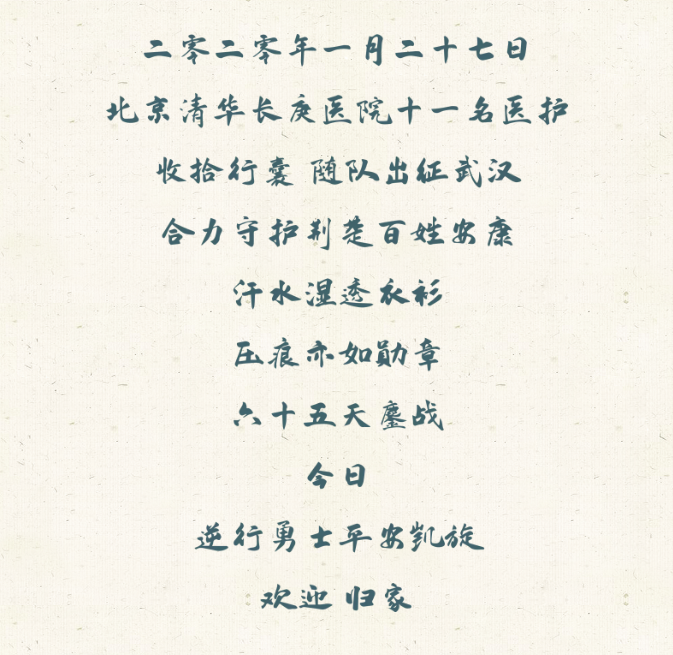 二零二零年一月二十七日
北京清华长庚医院十一名医护
收拾行囊 随队出征武汉
合力守护荆楚百姓安康
汗水湿透衣衫
压痕亦如勋章
六十五天鏖战
今日
逆行勇士平安凯旋
欢迎 归家